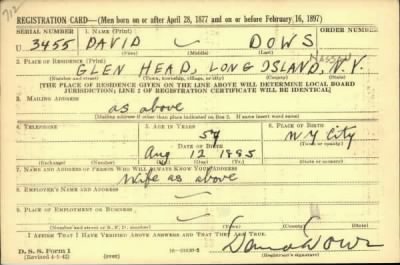 712
REGISTRATION CARD—(Men born on or after April 28, 1877 and on or before February 16, 1897)
SERIAL NUMBER 1. NAME (Print) ORDER NUMBER
U 3455 DAVID — DOWS
(First) (Middle) (Last)
2. PLACE OF RESIDENCE (Print) NASSAU
GLEN HEAD, LONG ISLAND, N.Y.
(Number and street) (Town, township, village, or city) (County) (State)
[THE PLACE OF RESIDENCE GIVEN ON THE LINE ABOVE WILL DETERMINE LOCAL BOARD
JURISDICTION; LINE 2 OF REGISTRATION CERTIFICATE WILL BE IDENTICAL]
3. MAILING ADDRESS
as above
[Mailing address if other than place indicated on line 2. If same insert word same]
4. TELEPHONE 5. AGE IN YEARS 6. PLACE OF BIRTH
DATE OF BIRTH
N Y City
(Town or county)
Aug 12 1885
(Exchange) (Number) (Mo.) (Day) (Yr.) (State or country)
7. NAME AND ADDRESS OF PERSON WHO WILL ALWAYS KNOW YOUR ADDRESS
Wife as above
8. EMPLOYER'S NAME AND ADDRESS
—
9. PLACE OF EMPLOYMENT OR BUSINESS
—
(Number and street or R. F. D. number) (Town) (County) (State)
I AFFIRM THAT I HAVE VERIFIED ABOVE ANSWERS AND THAT THEY ARE TRUE.
D. S. S. Form 1
(Revised 4-1-42) (over)
David Dows
(Registrant's signature)